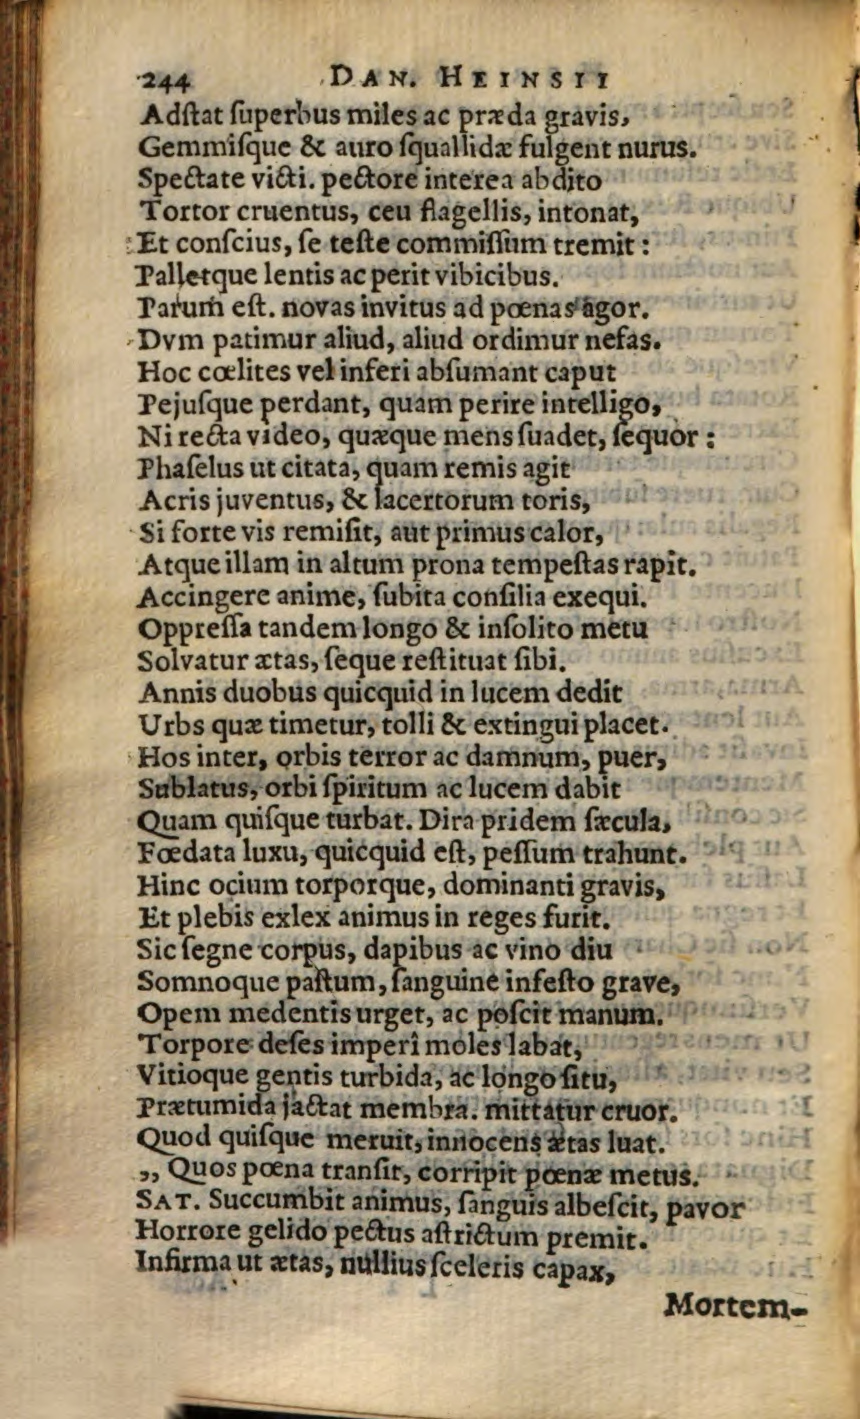 244 DAN. HEINSII
Adſtat ſuperbus miles ac præda gravis,
Gemmiſque & auro ſquallidæ fulgent nurus.
Spectate victi. pectore interea abdito
Tortor cruentus, ceu flagellis, intonat,
Et conſcius, ſe teſte commiſſum tremit:
Palletque lentis ac perit vibicibus.
Parum eſt. novas invitus ad pœnas agor.
Dvm patimur aliud, aliud ordimur nefas.
Hoc cœlites vel inferi abſumant caput
Pejuſque perdant, quam perire intelligo,
Ni recta video, quæque mens ſuadet, ſequor:
Phaſelus ut citata, quam remis agit
Acris juventus, & lacertorum toris,
Si forte vis remiſit, aut primus calor,
Atque illam in altum prona tempeſtas rapit.
Accingere anime, ſubita conſilia exequi.
Oppreſſa tandem longo & inſolito metu
Solvatur ætas, ſeque reſtituat ſibi.
Annis duobus quicquid in lucem dedit
Urbs quæ timetur, tolli & extingui placet.
Hos inter, orbis terror ac damnum, puer,
Sublatus, orbi ſpiritum ac lucem dabit
Quam quiſque turbat. Dira pridem ſæcula,
Fœdata luxu, quicquid eſt, peſſum trahunt.
Hinc ocium torporque, dominanti gravis,
Et plebis exlex animus in reges furit.
Sic ſegne corpus, dapibus ac vino diu
Somnoque paſtum, ſanguine infeſto grave,
Opem medentis urget, ac poſcit manum.
Torpore deſes imperî moles labat,
Vitioque gentis turbida, ac longo ſitu,
Prætumida jactat membra. mittatur cruor.
Quod quiſque meruit, innocens ætas luat.
„ Quos pœna tranſit, corripit pœnæ metus.
SAT. Succumbit animus, ſanguis albeſcit, pavor
Horrore gelido pectus aſtrictum premit.
Infirma ut ætas, nullius ſceleris capax,
Mortem-